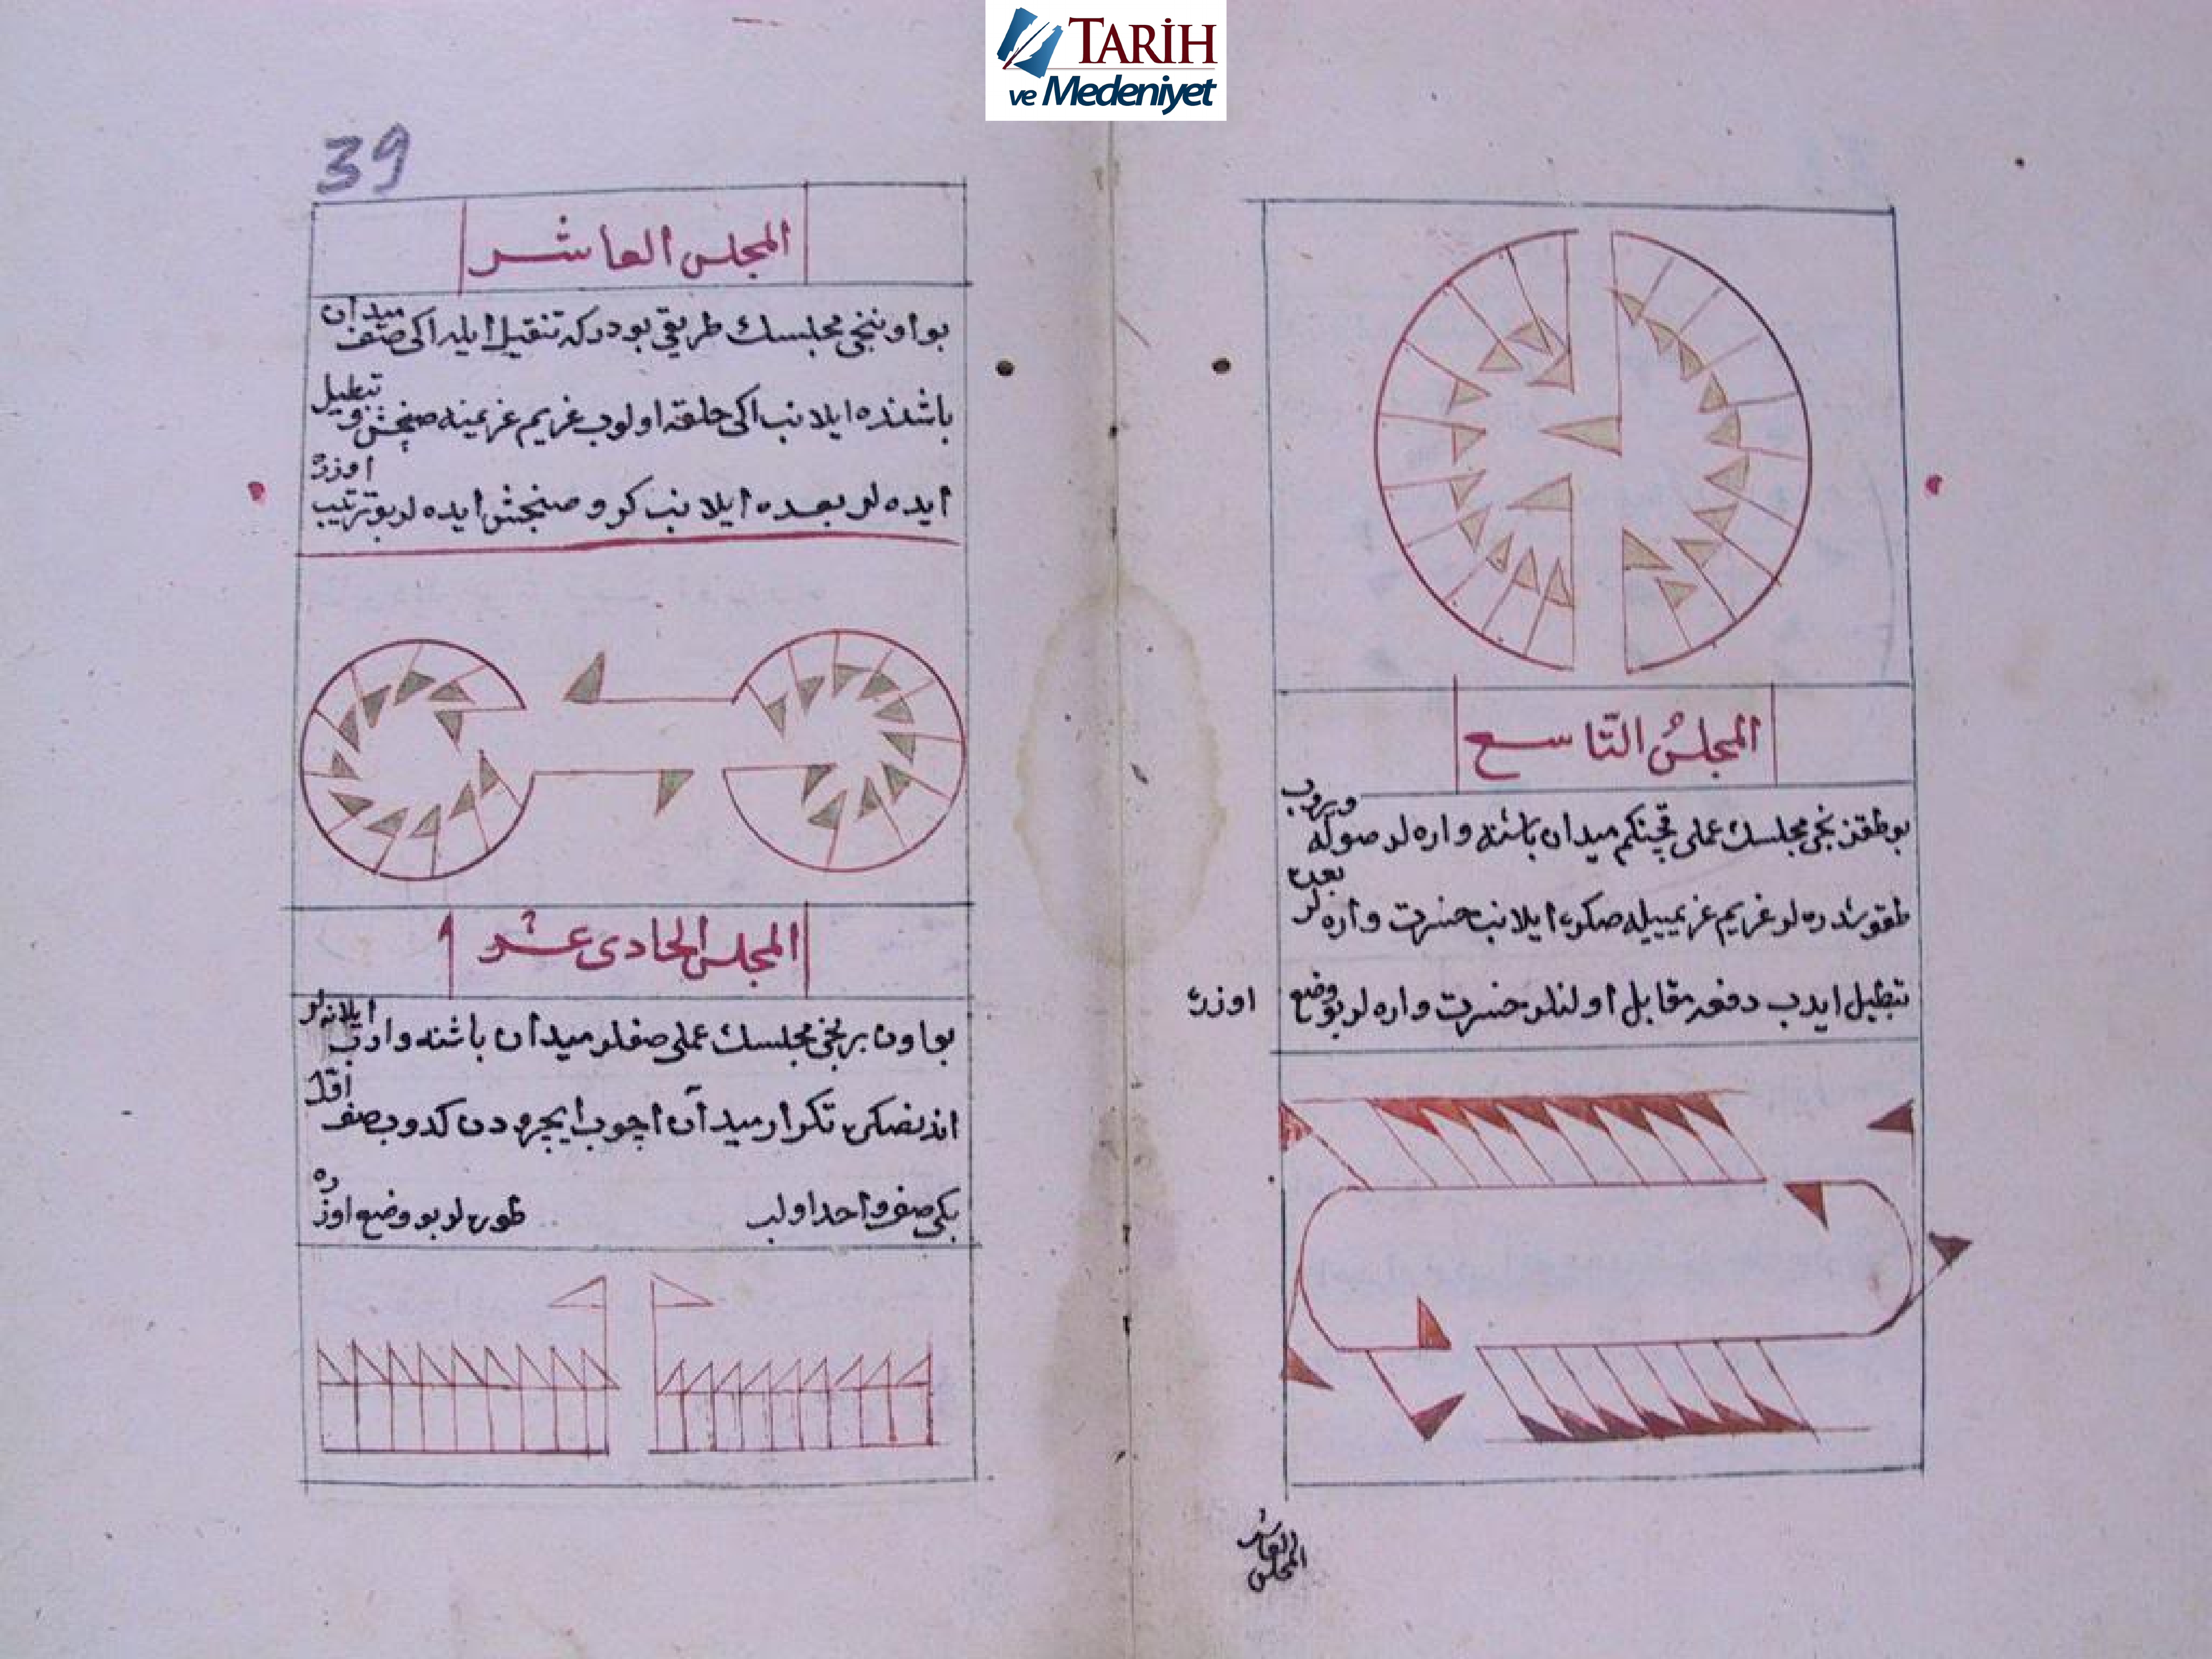 TARİH
ve Medeniyet
المجلسُ التّاسع
بو طقزنجی مجلسك عملی قچنكم میدان باشنه واره لر صوله ویروب
طقوشدره لر غریم غریمیله صكره ایلانب ضرت واره لر بعده
تبطیل ایدب دفعه مقابل اولنلر ضرت واره لر بو وضع اوزره
المجلس العاشر
39
المجلس العاشر
بو اوننجی مجلسك طریقی بودركه تنقیل ایله اكی صف میدان
باشنده ایلانب اكی حلقه اولوب غریم غریمینه صنجش و تبطیل
ایده لر بعده ایلانب كرو صنجش ایده لر بو ترتیب اوزره
المجلس الحادی عشر
بو اون برنجی مجلسك عملی صفلر میدان باشنه وارب ایلانه لر
اندنصكره تكرار میدان اچوب ایچرودن كدوب صف
بكی صف واحد اولب طوره لر بو وضع اوزره